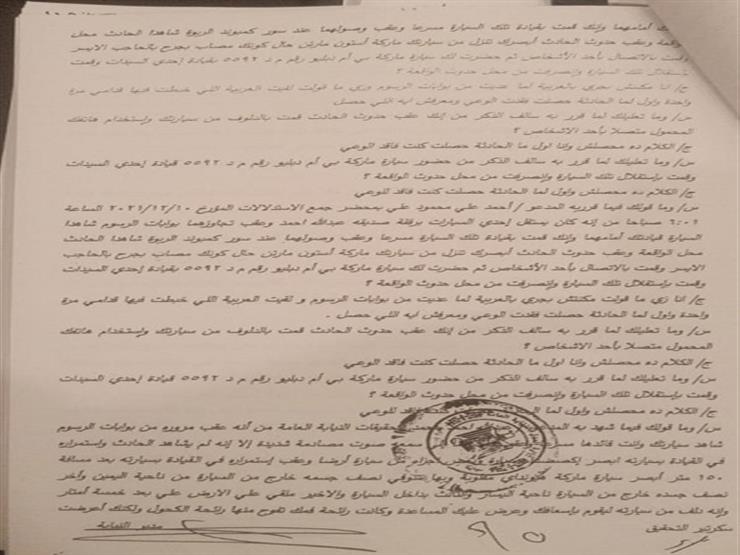 أمامهما وإنك قمت بقيادة تلك السيارة مسرعا وعقب وصولهما عند سور كمبوند الربوة شاهدا الحادث محل
واقعة وعقب حدوث الحادث أبصرك تنزل من سيارتك ماركة أستون مارتن حال كونك مصاب بجرح بالحاجب الايسر
وقمت بالاتصال بأحد الأشخاص ثم حضرت لك سيارة ماركة بي أم دبليو رقم م د ٥٥٩٢ بقيادة إحدي السيدات وقمت
بإستقلال تلك السيارة وإنصرفت من محل حدوث الواقعة ؟
ج/ انا مكنتش بجري بالعربية لما عديت من بوابات الرسوم وزي ما قولت لقيت العربية اللي خبطت فيها قدامي مرة
واحدة واول لما الحادثة حصلت فقدت الوعي ومعرفش ايه اللي حصل
س/ وما تعليلك لما قرر به سالف الذكر من إنك عقب حدوث الحادث قمت بالدلوف من سيارتك وإستخدام هاتفك
المحمول متصلا بأحد الاشخاص ؟
ج/ الكلام ده محصلش وانا اول ما الحادثة حصلت كنت فاقد الوعي
س/ وما تعليلك لما قرر به سالف الذكر من حضور سيارة ماركة بي أم دبليو رقم م د ٥٥٩٢ قيادة إحدي السيدات
وقمت بإستقلال تلك السيارة وإنصرفت من محل حدوث الواقعة ؟
ج/ الكلام ده محصلش واول لما الحادثة حصلت كنت فاقد للوعي
س/ وما قولك فيما قرربه المدعو / أحمد علي محمود علي بمحضر جمع الاستدلالات المؤرخ ٢٠٢١/١٢/١٠ الساعة
٦:٠١ صباحا من إنه كان يستقل إحدي السيارات برفقة صديقه عبدالله احمد وعقب تجاوزهما بوابات الرسوم شاهدا
السيارة قيادتك أمامهما وإنك قمت بقيادة تلك السيارة مسرعا وعقب وصولهما عند سور كمبوند الربوة شاهدا الحادث
محل الواقعة وعقب حدوث الحادث أبصرك تنزل من سيارتك ماركة أستون مارتن حال كونك مصاب بجرح بالحاجب
الايسر وقمت بالاتصال بأحد الأشخاص ثم حضرت لك سيارة ماركة بي أم دبليو رقم م د ٥٥٩٢ بقيادة إحدي السيدات
وقمت بإستقلال تلك السيارة وإنصرفت من محل حدوث الواقعة ؟
ج/ انا زي ما قولت مكنتش بجري بالعربية لما عديت من بوابات الرسوم و لقيت العربية اللي خبطت فيها قدامي مرة
واحدة واول لما الحادثة حصلت فقدت الوعي ومعرفش ايه اللي حصل .
س/ وما تعليلك لما قرر به سالف الذكر من إنك عقب حدوث الحادث قمت بالدلوف من سيارتك وإستخدام هاتفك
المحمول متصلا بأحد الاشخاص ؟
ج/ الكلام ده محصلش وانا اول ما الحادثة حصلت كنت فاقد الوعي
س/ وما تعليلك لما قرر به سالف الذكر من حضور سيارة ماركة بي أم دبليو رقم م د ٥٥٩٢ قيادة إحدي السيدات
وقمت بإستقلال تلك السيارة وإنصرفت من محل حدوث الواقعة ؟
ج/ الكلام ده محصلش واول لما كنت فاقد للوعي
س/ وما قولك فيما شهد به بتحقيقات النيابة العامة من أنه عقب مروره من بوابات الرسوم
شاهد سيارتك وانت قائدها سمع صوت مصادمة شديدة إلا إنه لم يشاهد الحادث وإستمراره
في القيادة بسيارته ابصر سيارة أرضا وعقب إستمراره في القيادة بسيارته بعد مسافة
١٥٠ متر أبصر سيارة ماركة هيونداي مقلوبة وبها متوفي نصف جسمه خارج من السيارة من ناحية اليمين وأخر
نصف جسده خارج من السيارة ناحية اليسار بداخل السيارة والاخير ملقي علي الارض علي بعد خمسة أمتار
وإنه دلف من سيارته ليقوم بإسعافك وعرض عليك المساعدة وكانت رائحة فمك تفوح منها رائحة الكحول ولكنك أعرضت
سكرتير التحقيق مدير النيابة